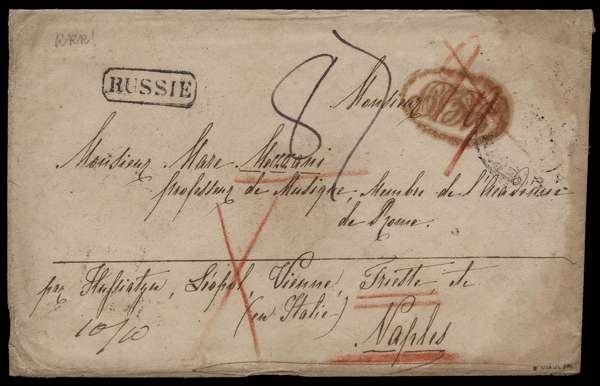 RRR!
RUSSIE
87
Monsieur
Monsieur Marc Mezzorani
professeur de Musique, Membre de l'Académie
de Rome.
par Hussiatyn, Léopol, Vienne, Trieste, etc
(en Italie)
10/10
Naples